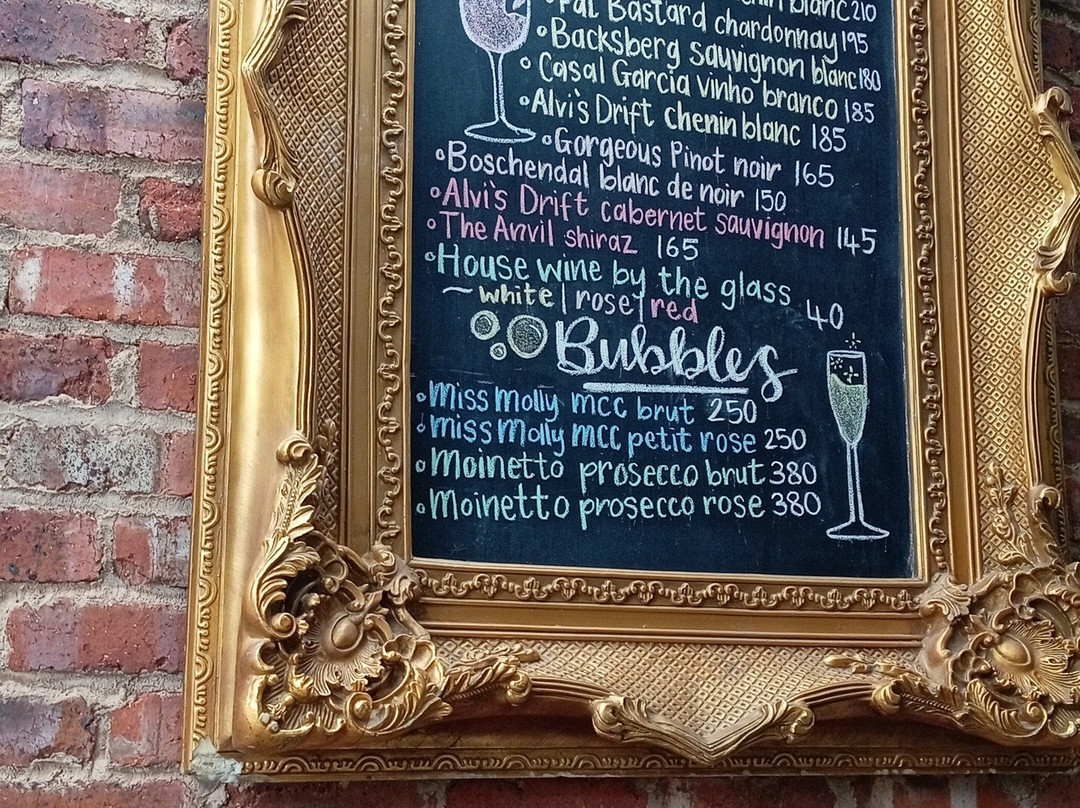 blanc 210
Fat Bastard chardonnay 195
Backsberg sauvignon blanc 180
Casal Garcia vinho branco 185
Alvi's Drift chenin blanc 185
Gorgeous Pinot noir 165
Boschendal blanc de noir 150
Alvi's Drift cabernet sauvignon 145
The Anvil shiraz 165
House wine by the glass 40
~ white | rose | red
Bubbles
Miss Molly MCC brut 250
Miss Molly MCC petit rose 250
Moinetto prosecco brut 380
Moinetto prosecco rose 380